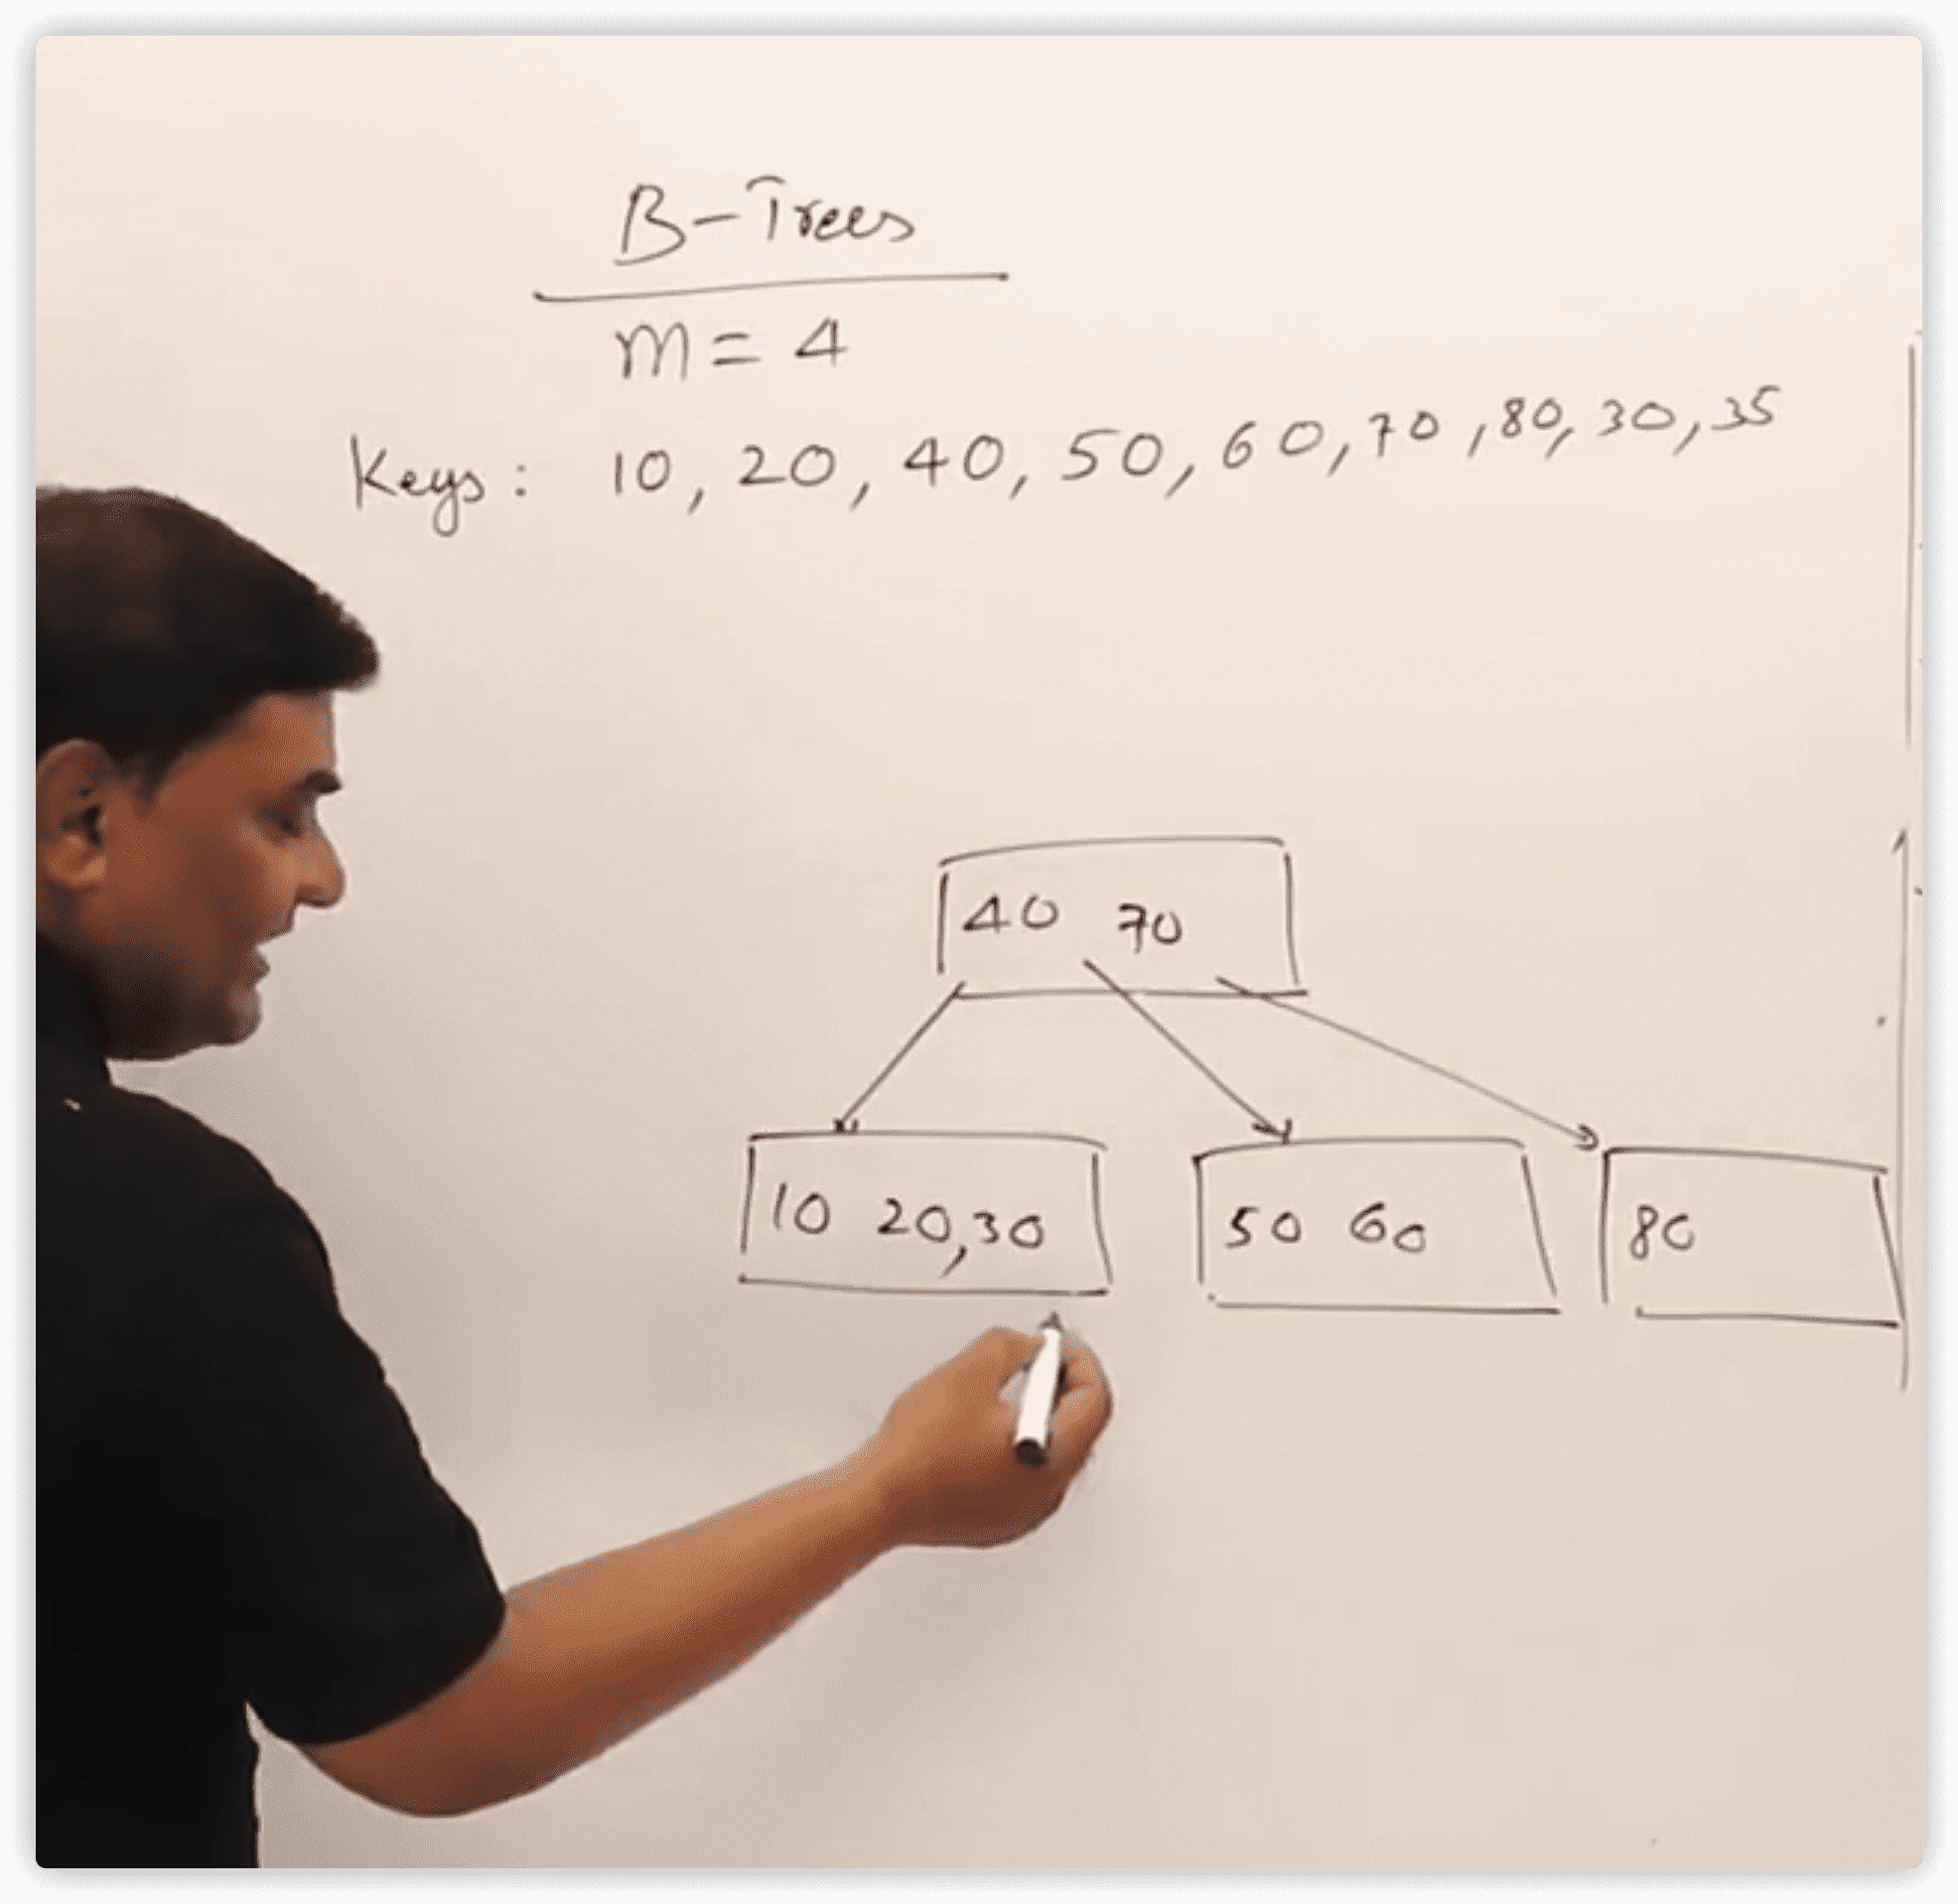 B-Trees
m = 4
Keys: 10, 20, 40, 50, 60, 70, 80, 30, 35
40 70
10 20,30 50 60 80